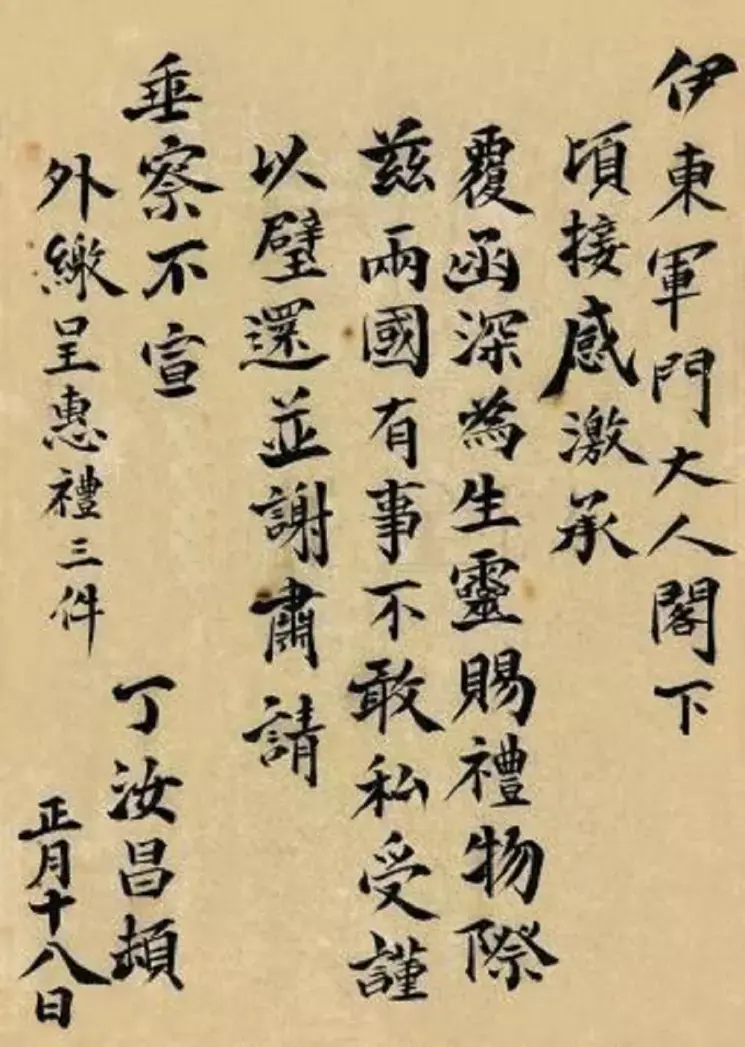 伊東軍門大人閣下
頃接感激承
覆函深為生靈賜禮物際
茲兩國有事不敢私受謹
以璧還並謝肅請
垂察不宣
丁汝昌頓
外繳呈惠禮三件
正月十八日